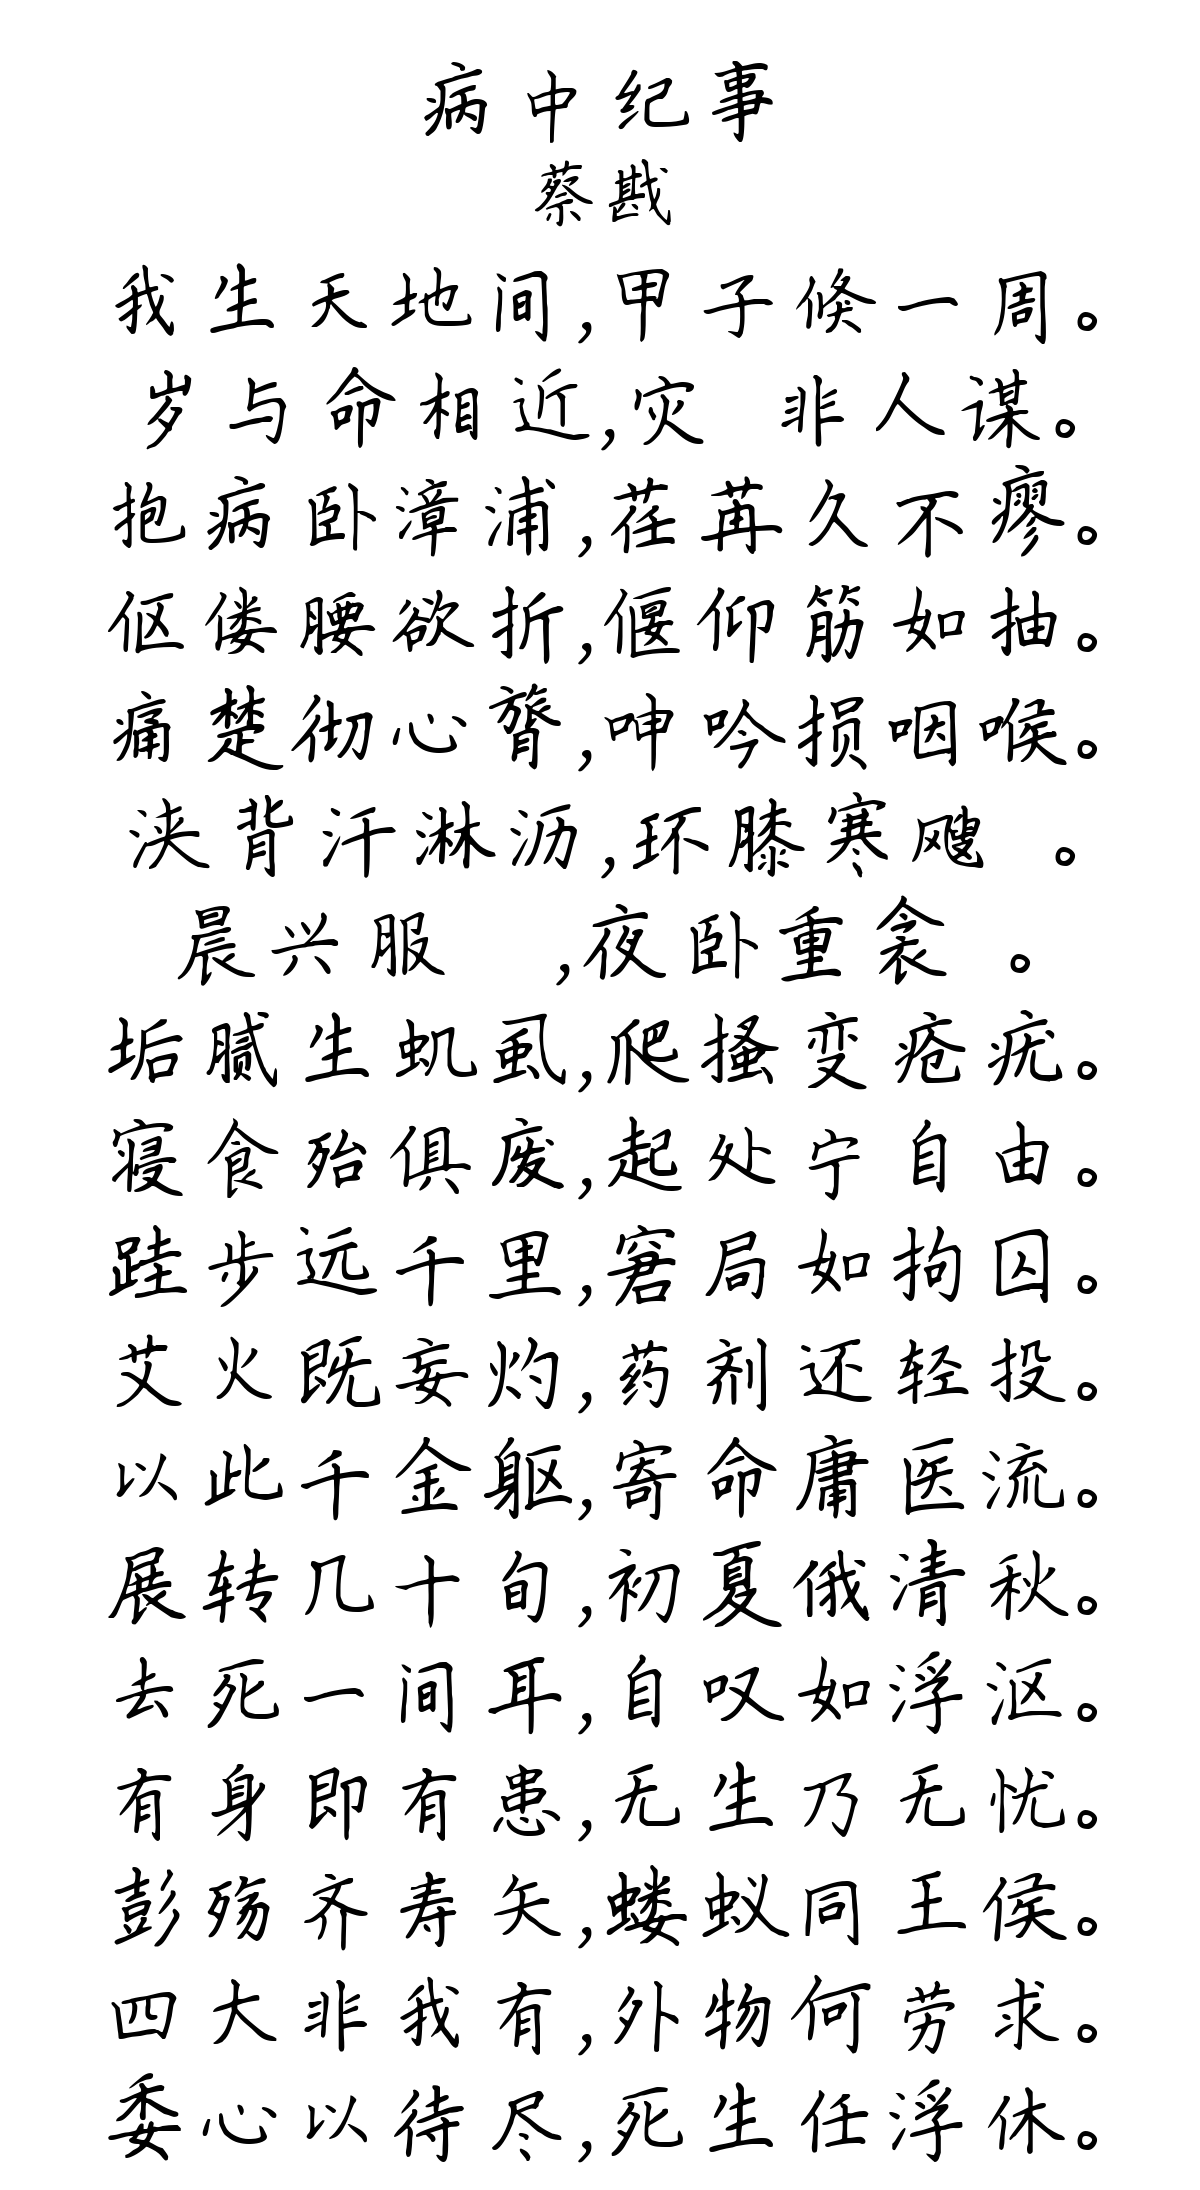 病中纪事
蔡戡
我生天地间,甲子倏一周。
岁与命相近,灾 非人谋。
抱病卧漳浦,荏苒久不瘳。
伛偻腰欲折,偃仰筋如抽。
痛楚彻心膂,呻吟损咽喉。
浃背汗淋沥,环膝寒飕 。
晨兴服 ,夜卧重衾 。
垢腻生虮虱,爬搔变疮疣。
寝食殆俱废,起处宁自由。
跬步远千里,窘局如拘囚。
艾火既妄灼,药剂还轻投。
以此千金躯,寄命庸医流。
展转几十旬,初夏俄清秋。
去死一间耳,自叹如浮沤。
有身即有患,无生乃无忧。
彭殇齐寿矢,蝼蚁同王侯。
四大非我有,外物何劳求。
委心以待尽,死生任浮休。